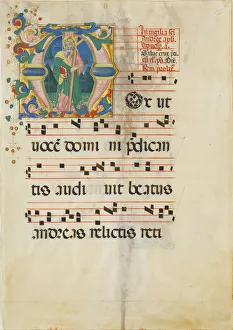 In vigilia sci
Andree apli
Mox ut
uocem domini predican
tis audiuit beatus
andreas relictis reti